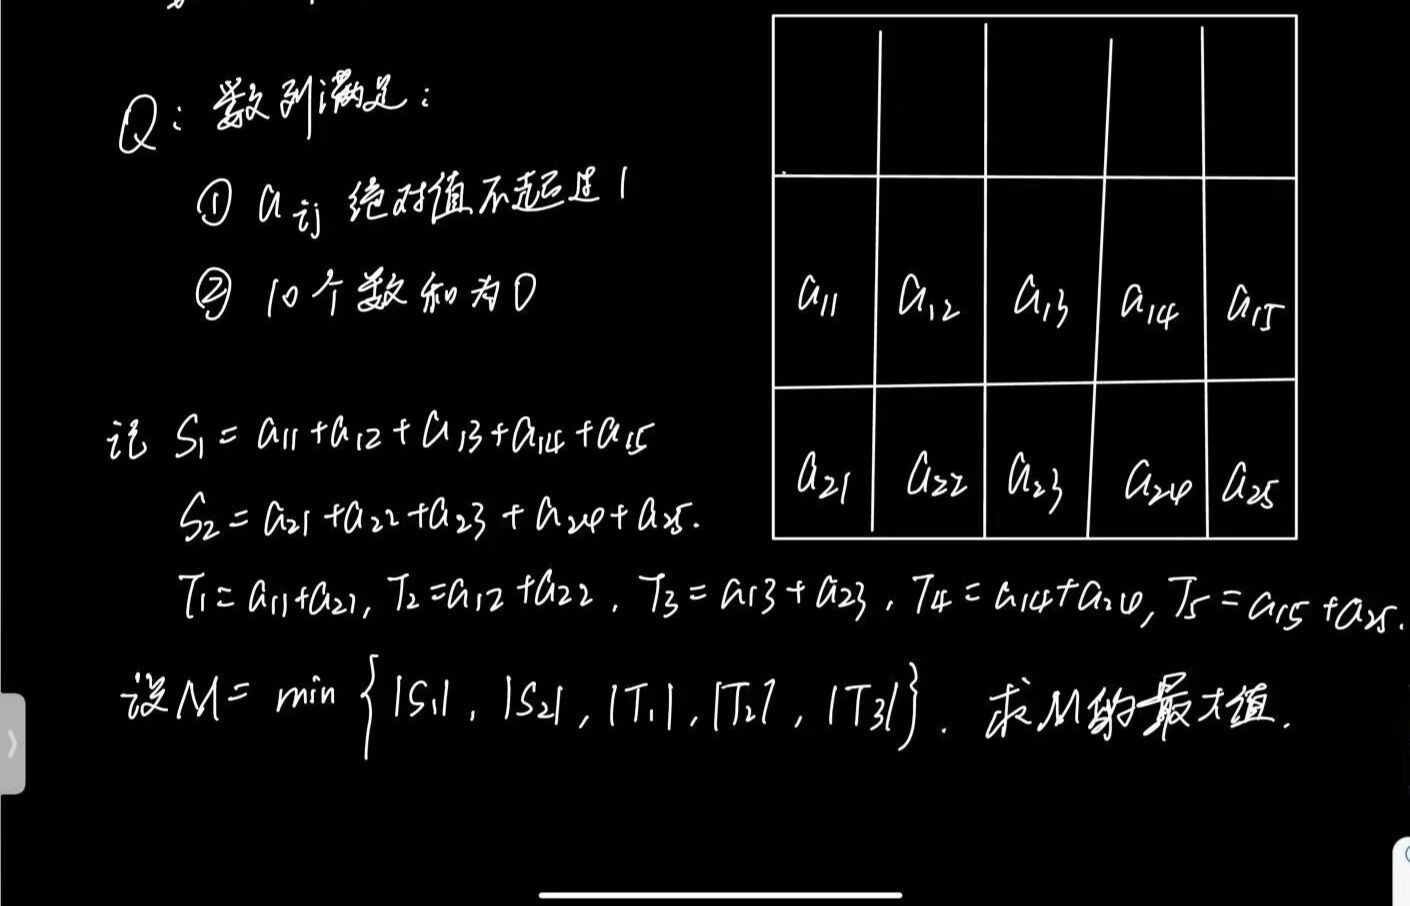 Q：数列满足：
① aij 绝对值不超过1
② 10个数和为0
a11 a12 a13 a14 a15
a21 a22 a23 a24 a25
记 S1 = a11 + a12 + a13 + a14 + a15
S2 = a21 + a22 + a23 + a24 + a25.
T1 = a11 + a21, T2 = a12 + a22, T3 = a13 + a23, T4 = a14 + a24, T5 = a15 + a25.
设M = min { |S1|, |S2|, |T1|, |T2|, |T3| }. 求M的最大值.